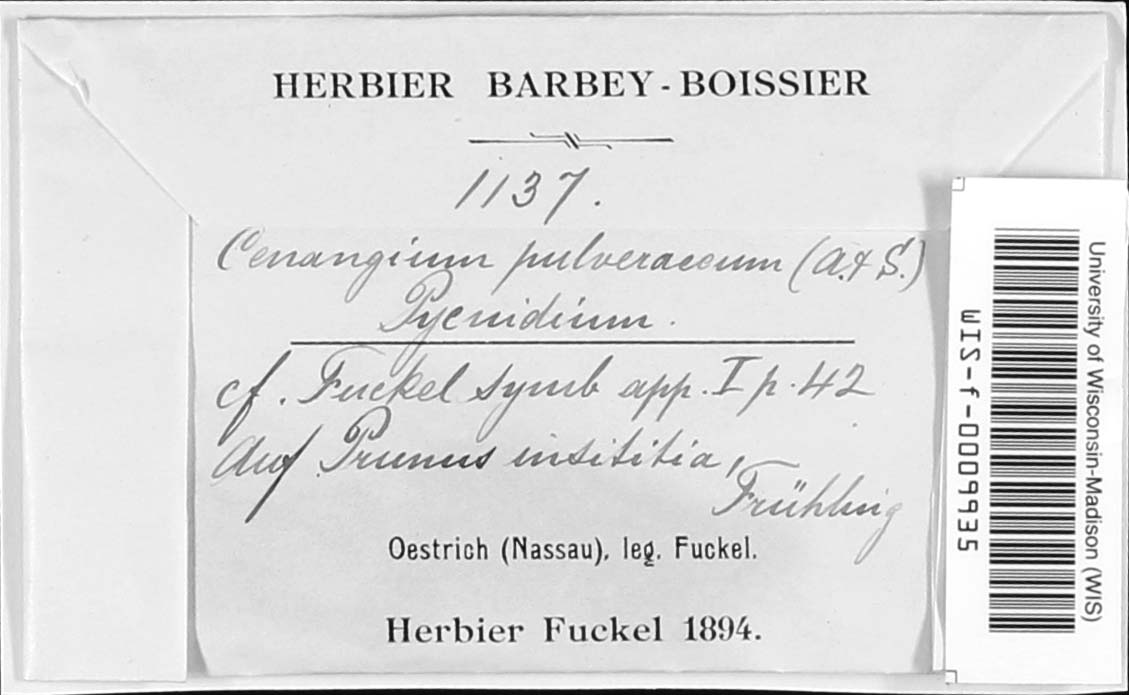 HERBIER BARBEY-BOISSIER
1137.
Cenangium pulveraceum (A. & S.)
Pycnidium.
cf. Fuckel symb app. I p. 42
Auf Prunus insititia,
Frühling
Oestrich (Nassau), leg. Fuckel.
Herbier Fuckel 1894.
University of Wisconsin-Madison (WIS)
WIS-f-0009935